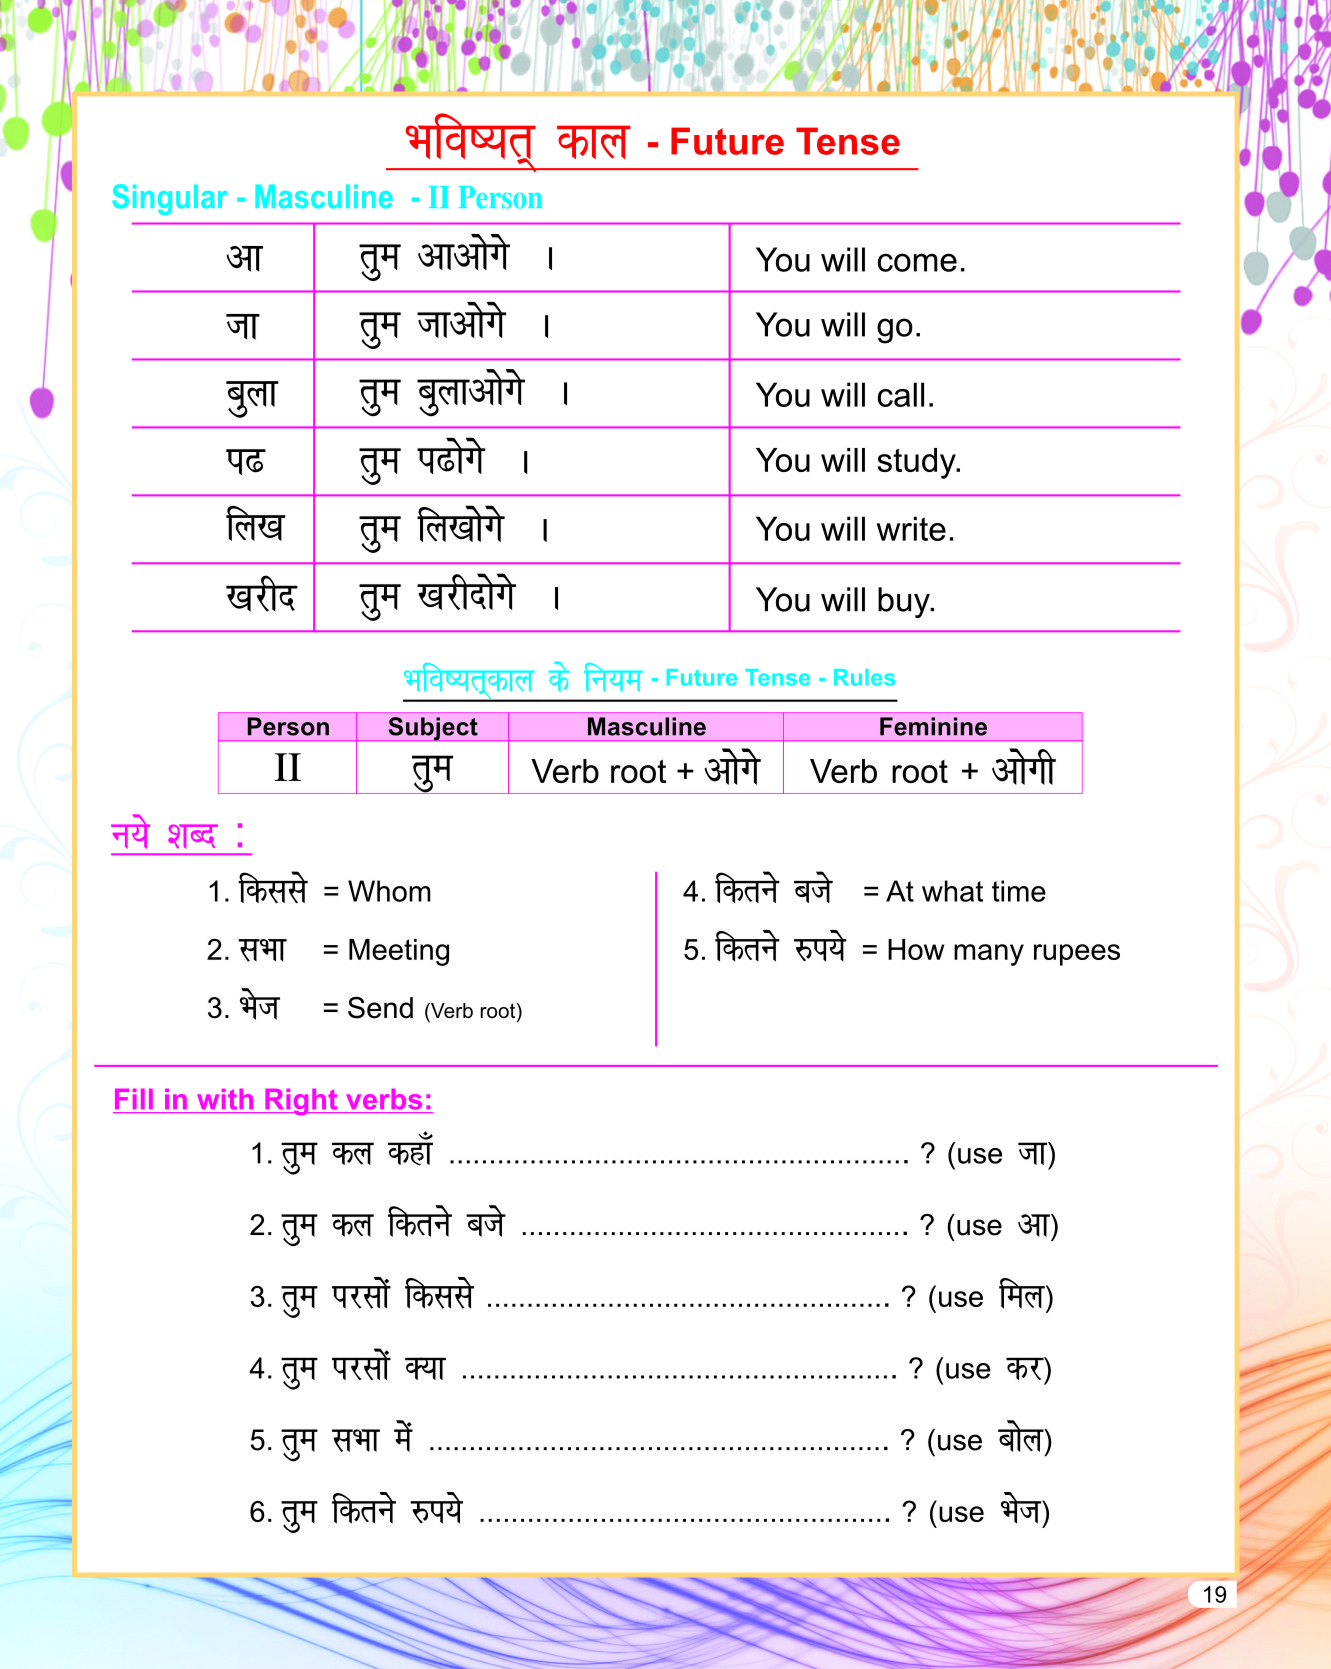 भविष्यत् काल - Future Tense
Singular - Masculine - II Person
आ तुम आओगे । You will come.
जा तुम जाओगे । You will go.
बुला तुम बुलाओगे । You will call.
पढ तुम पढोगे । You will study.
लिख तुम लिखोगे । You will write.
खरीद तुम खरीदोगे । You will buy.
भविष्यत्काल के नियम - Future Tense - Rules
Person Subject Masculine Feminine
II तुम Verb root + ओगे Verb root + ओगी
नये शब्द :
1. किससे = Whom
2. सभा = Meeting
3. भेज = Send (Verb root)
4. कितने बजे = At what time
5. कितने रुपये = How many rupees
Fill in with Right verbs:
1. तुम कल कहाँ ......................................................... ? (use जा)
2. तुम कल कितने बजे ................................................ ? (use आ)
3. तुम परसों किससे .................................................. ? (use मिल)
4. तुम परसों क्या ...................................................... ? (use कर)
5. तुम सभा में ......................................................... ? (use बोल)
6. तुम कितने रुपये ................................................... ? (use भेज)
19